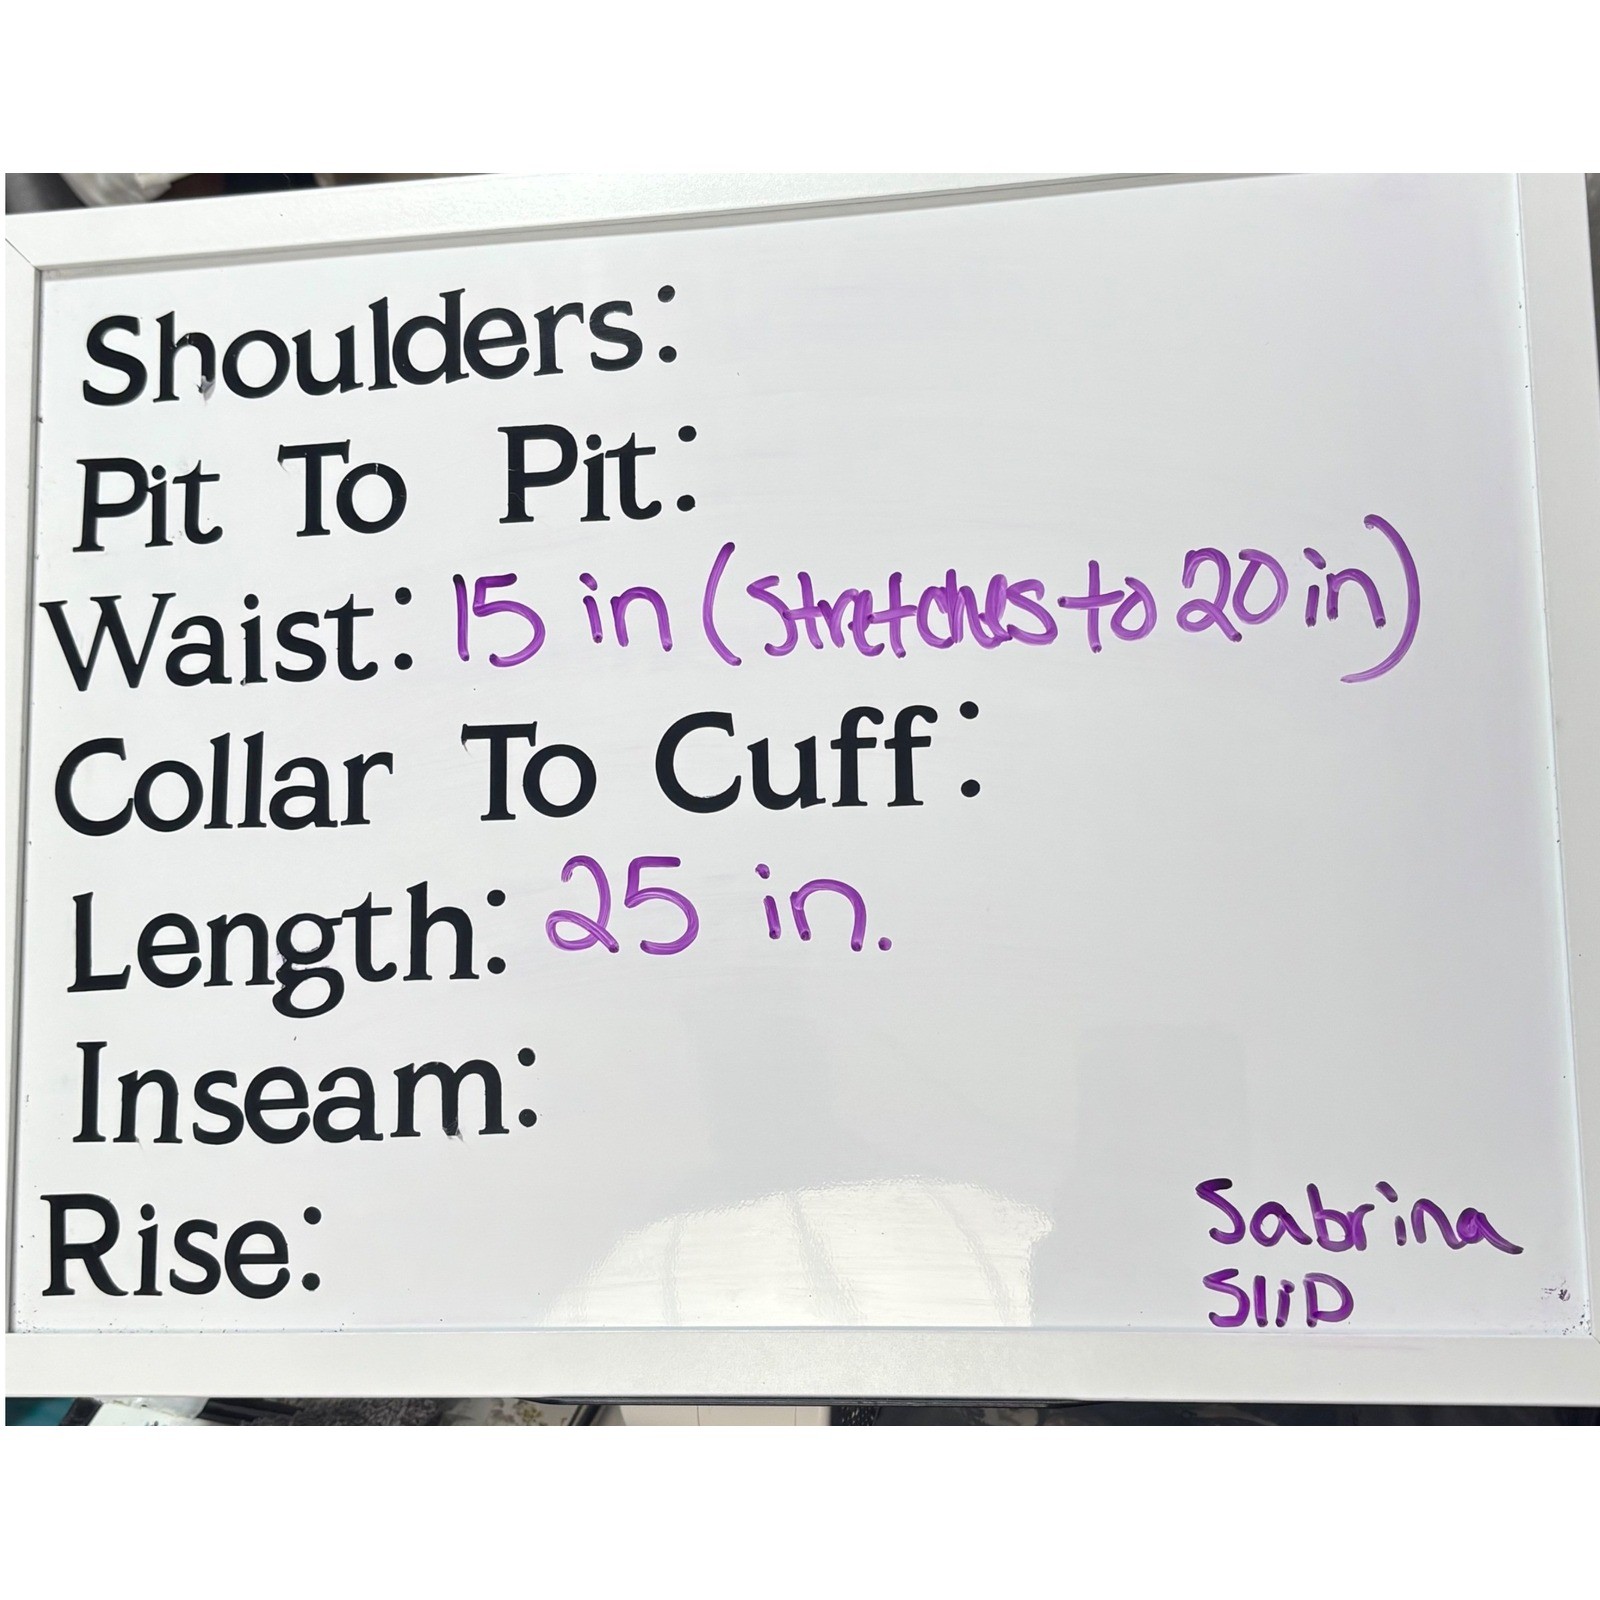 Shoulders:
Pit To Pit:
Waist: 15 in (stretches to 20 in)
Collar To Cuff:
Length: 25 in.
Inseam:
Rise:
Sabrina
SliD